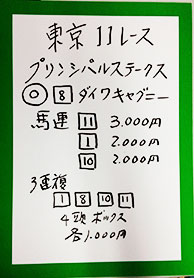 東京 11レース
プリンシパルステークス
◎ 8 ダイワキャグニー
馬連 11 3.000円
1 2.000円
10 2.000円
3連複
1 8 10 11
4頭ボックス
各1.000円